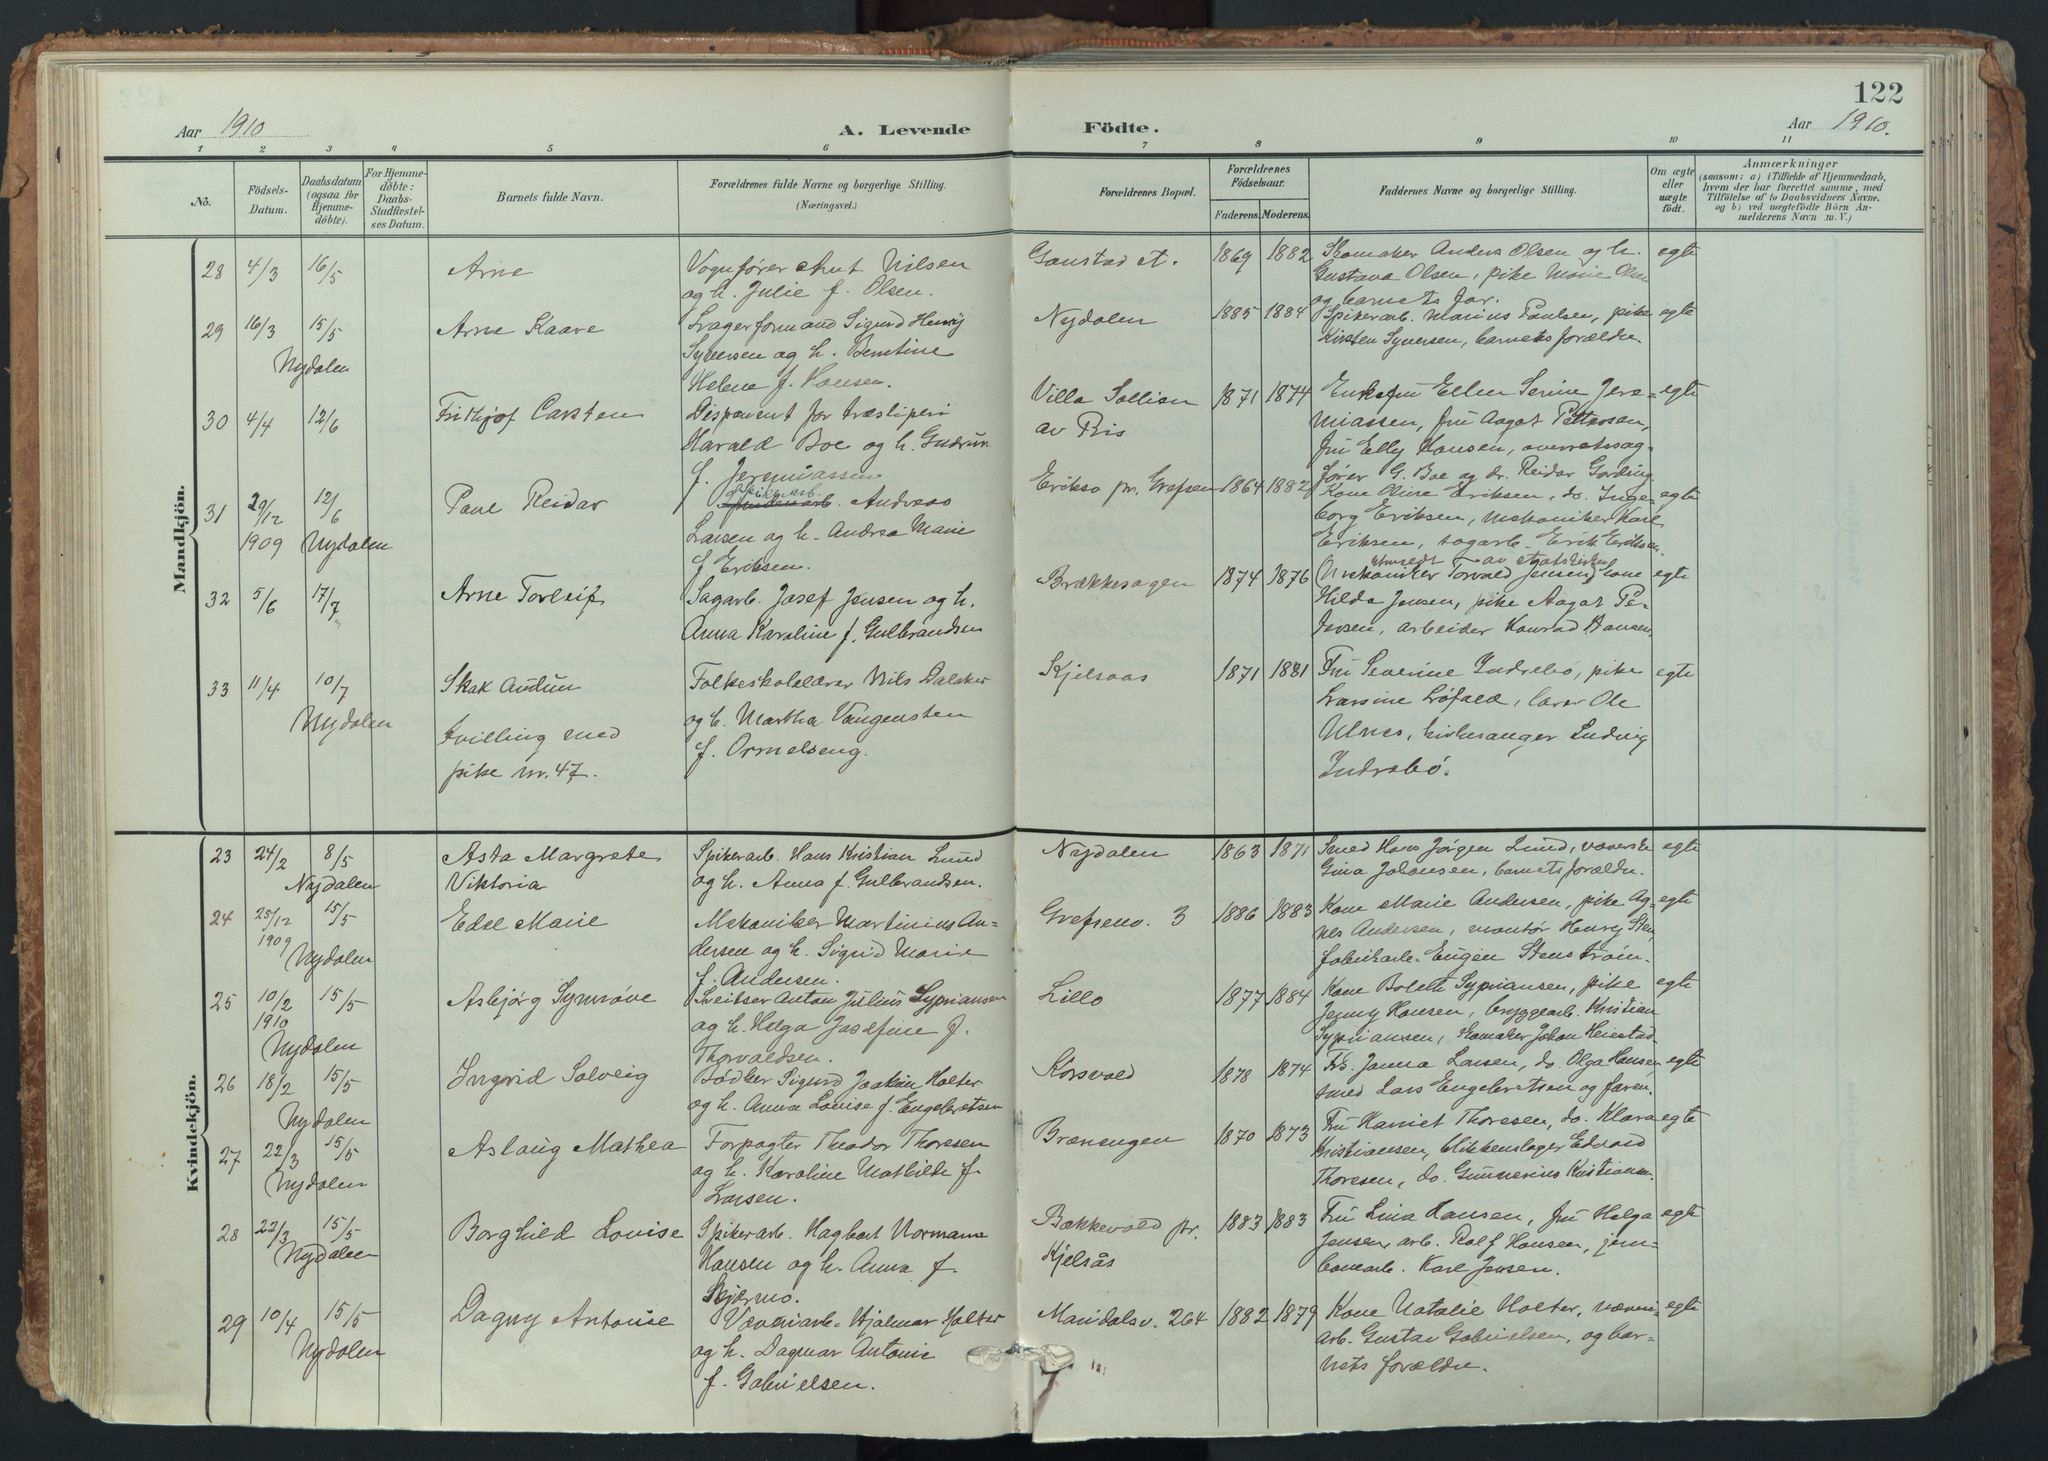 122
Aar 1910
A. Levende Födte.
Aar 1910.
1 2 3 4 5 6 7 8 9 10 11
No.
Födsels-
Datum.
Daabsdatum
(ogsaa for
Hjemme-
döbte).
For Hjemme-
döbte:
Daabs-
Stadfæstel-
ses Datum.
Barnets fulde Navn.
Forældrenes fulde Navne og borgerlige Stilling.
(Næringsvei.)
Forældrenes Bopæl.
Forældrenes
Födselsaar.
Faderens. Moderens.
Faddernes Navne og borgerlige Stilling.
Om ægte
eller
uægte
födt.
Anmærkninger
(saasom: a) i Tilfælde af Hjemmedaab,
hvem der har forrettet samme, med
Tilföielse af to Daabsvidners Navne,
og b) ved uægtefödte Börn An-
melderens Navn m. V.)
Mandkjön.
28 4/3 16/5 Arne
Vognfører Arnt Nilsen
og h. Julie f. Olsen.
Gaustad st. 1869 1882
Skomaker Anders Olsen og h.
Gustava Olsen, pike Marie Olsen
og barnets far.
egte
29 16/3 15/5 Arne Kaare
Nydalen
Lagerformand Sigurd Henry
Syversen og h. Berntine
Helene f. Hansen.
Nydalen 1885 1884
Spikerarb. Marius Paulsen, pike
Kirsten Syversen, barnets forældre
egte
30 4/4 12/6 Frithjof Carsten
Disponent for træsliperi
Harald Boe og h. Gudrun
f. Jeremiassen
Villa Sollien
av Ris
1871 1874
Enkefru Ellen Serine Jere-
miassen, fru Aagot Pettersen,
fru Elly Hansen, overretssag-
fører G. Boe og dr. Reidar Gording
egte
31 29/12 12/6
1909 Nydalen
Paul Reidar
Spikerarb. Andreas
Larsen og h. Andrea Marie
f. Eriksen.
Grefsen 1864 1882
Kone Oline Eriksen, do. Inge-
borg Eriksen, mekaniker Karl
Eriksen, sagarb. Erik Eriksen.
egte
32 5/6 17/7 Arne Torleif
Sagarb. Josef Jensen og h.
Anna Karoline f. Gulbrandsen
Brækkesagen 1874 1876
utmeldt av statskirken
Mekaniker Torvald Jensen, kone
Hilda Jensen, pike Aagot Pe-
tersen, arbeider Konrad Hansen.
egte
33 11/4 10/7 Skak Audun
Nydalen
tvilling med
pike nr. 47.
Folkeskolelærer Nils Dalaker
og h. Martha Vangensten
f. Ormelseng.
Kjelsaas 1871 1881
Fru Severine Indrebø, pike
Larsine Løfald, lærer Ole
Ulnes, kirkesanger Ludvig
Indrebø.
egte
Kvindekjön.
23 24/2 8/5 Asta Margrete
Nydalen Viktoria
Spikerarb. Hans Kristian Lund
og h. Anna f. Gulbrandsen.
Nydalen 1863 1871
Smed Hans Jørgen Lund, væverske
Gina Johansen, barnets forældre.
egte
24 25/12 15/5 Edel Marie
1909 Nydalen
Mekaniker Martinius An-
dersen og h. Sigrid Marie
f. Andersen.
Grefsenv. 3 1886 1883
Kone Marie Andersen, pike Ag-
nes Andersen, montør Henry Sten,
fabrikarb. Eugen Stenstrøm.
egte
25 10/2 15/5 Asbjørg Synnøve
1910
Nydalen
Sveitser Anton Julius Sypriansen
og h. Helga Josefine f.
Thorvaldsen.
Lillo 1877 1884
Kone Bolette Sypriansen, pike
Jenny Hansen, bryggearb. Kristian
Sypriansen, skomaker Johan Heiestad
egte
26 18/2 15/5 Ingrid Solveig
Nydalen
Bødker Sigurd Joakim Holter
og h. Anna Lovise f. Engebretsen
Korsvold 1878 1874
Frk. Janna Larsen, do. Olga Hansen
smed Lars Engebretsen og faren.
egte
27 22/3 15/5 Aslaug Mathea
Nydalen
Forpagter Theodor Thoresen
og h. Karoline Mathilde f.
Larsen.
Brænengen 1870 1873
Fru Harriet Thoresen, do. Klara
Kristiansen, blikkenslager Edvard
Thoresen, do. Gunnerius Kristiansen.
egte
28 22/3 15/5 Borghild Lovise
Nydalen
Spikerarb. Hagbart Normann
Hansen og h. Anna f.
Skjærmo.
Bækkevold pr.
Kjelsås
1883 1883
Fru Lina Hansen, fru Helga
Jensen, arb. Rolf Hansen, jern-
banearb. Karl Jensen.
egte
29 10/4 15/5 Dagny Antonie
Nydalen
Væveriarb. Hjalmar Holter
og h. Dagmar Antonie
f. Gabrielsen.
Maridalsv. 264 1882 1879
Kone Natalie Holter, væveri-
arb. Gustav Gabrielsen, og bar-
nets forældre.
egte